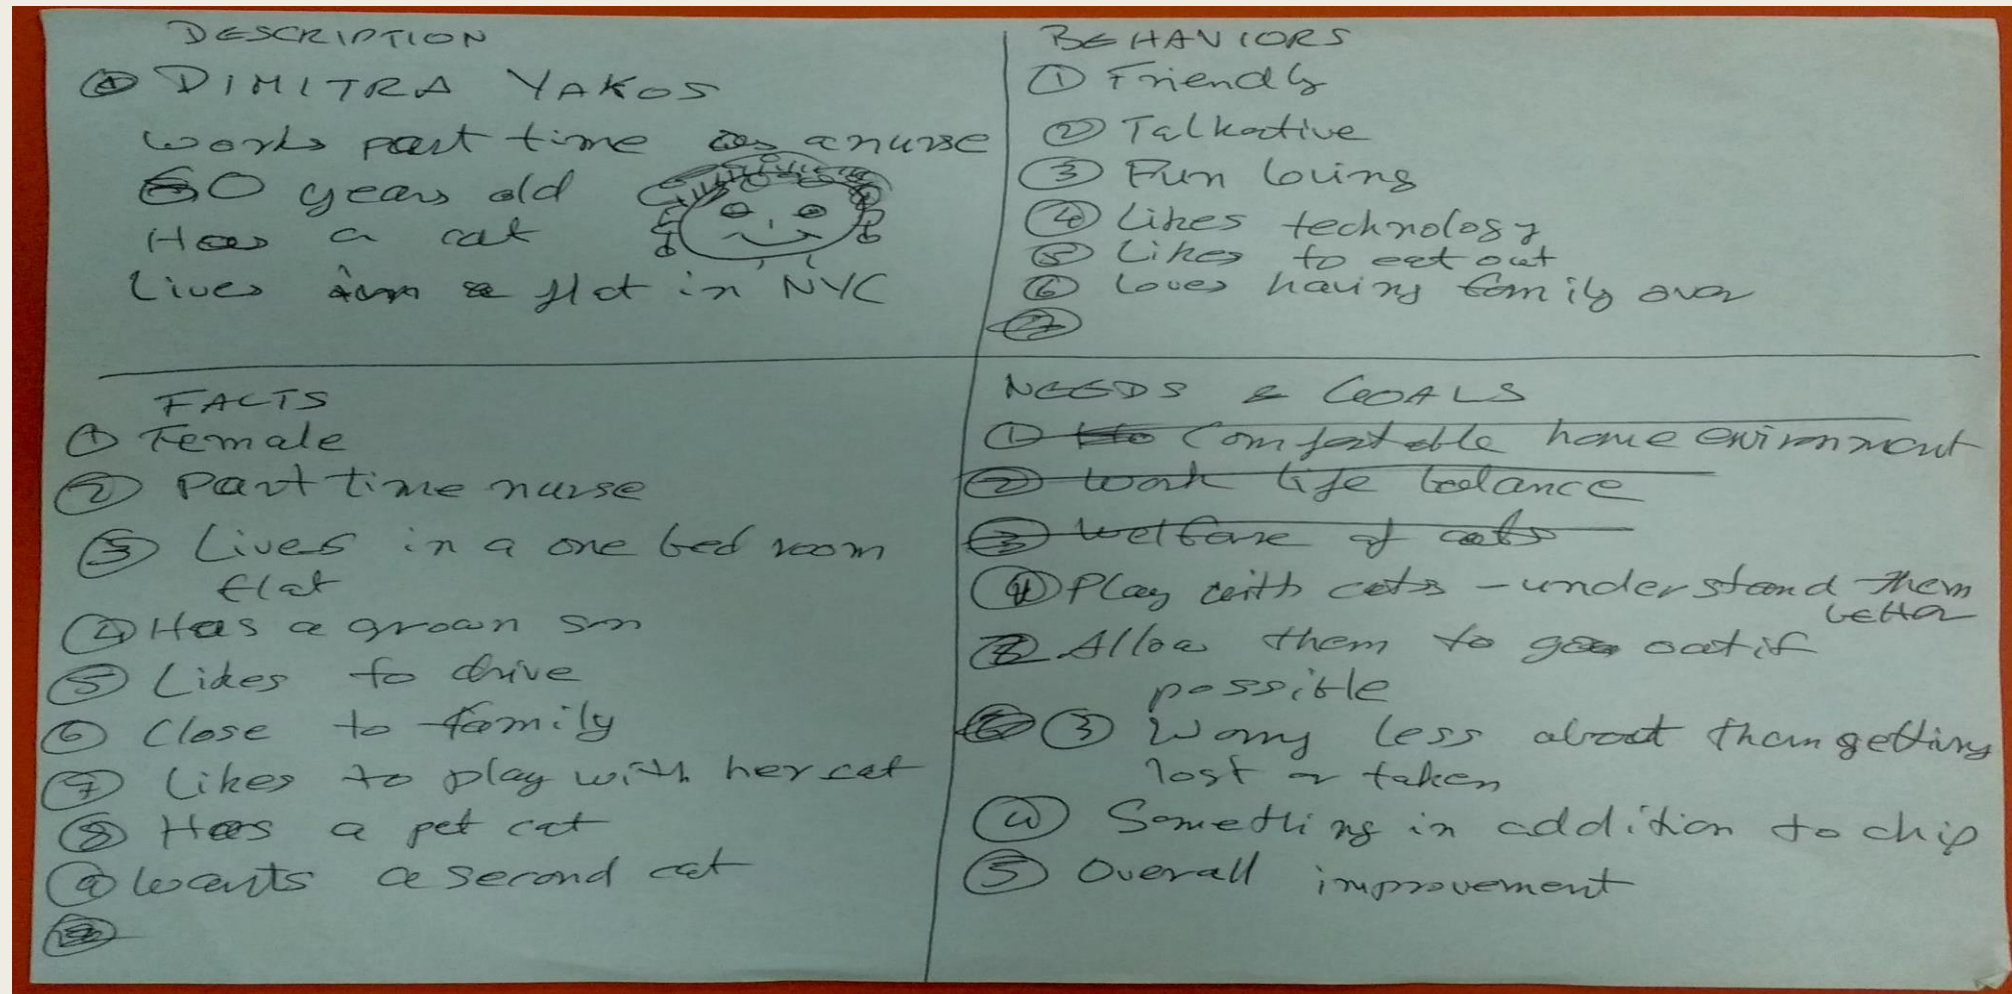 DESCRIPTION
① DIMITRA YAKOS
works part time as a nurse
60 years old
Has a cat
Lives in a flat in NYC
BEHAVIORS
① Friendly
② Talkative
③ Fun loving
④ Likes technology
⑤ Likes to eat out
⑥ Loves having family over
FACTS
① Female
② Part time nurse
③ Lives in a one bed room
flat
④ Has a grown son
⑤ Likes to drive
⑥ Close to family
⑦ Likes to play with her cat
⑧ Has a pet cat
⑨ wants a second cat
NEEDS & GOALS
① Comfortable home environment
② Work life balance
③ Welfare of cats
① Play with cats - understand them
better
2 Allow them to go out if
possible
③ Worry less about them getting
lost or taken
④ Something in addition to chip
⑤ Overall improvement